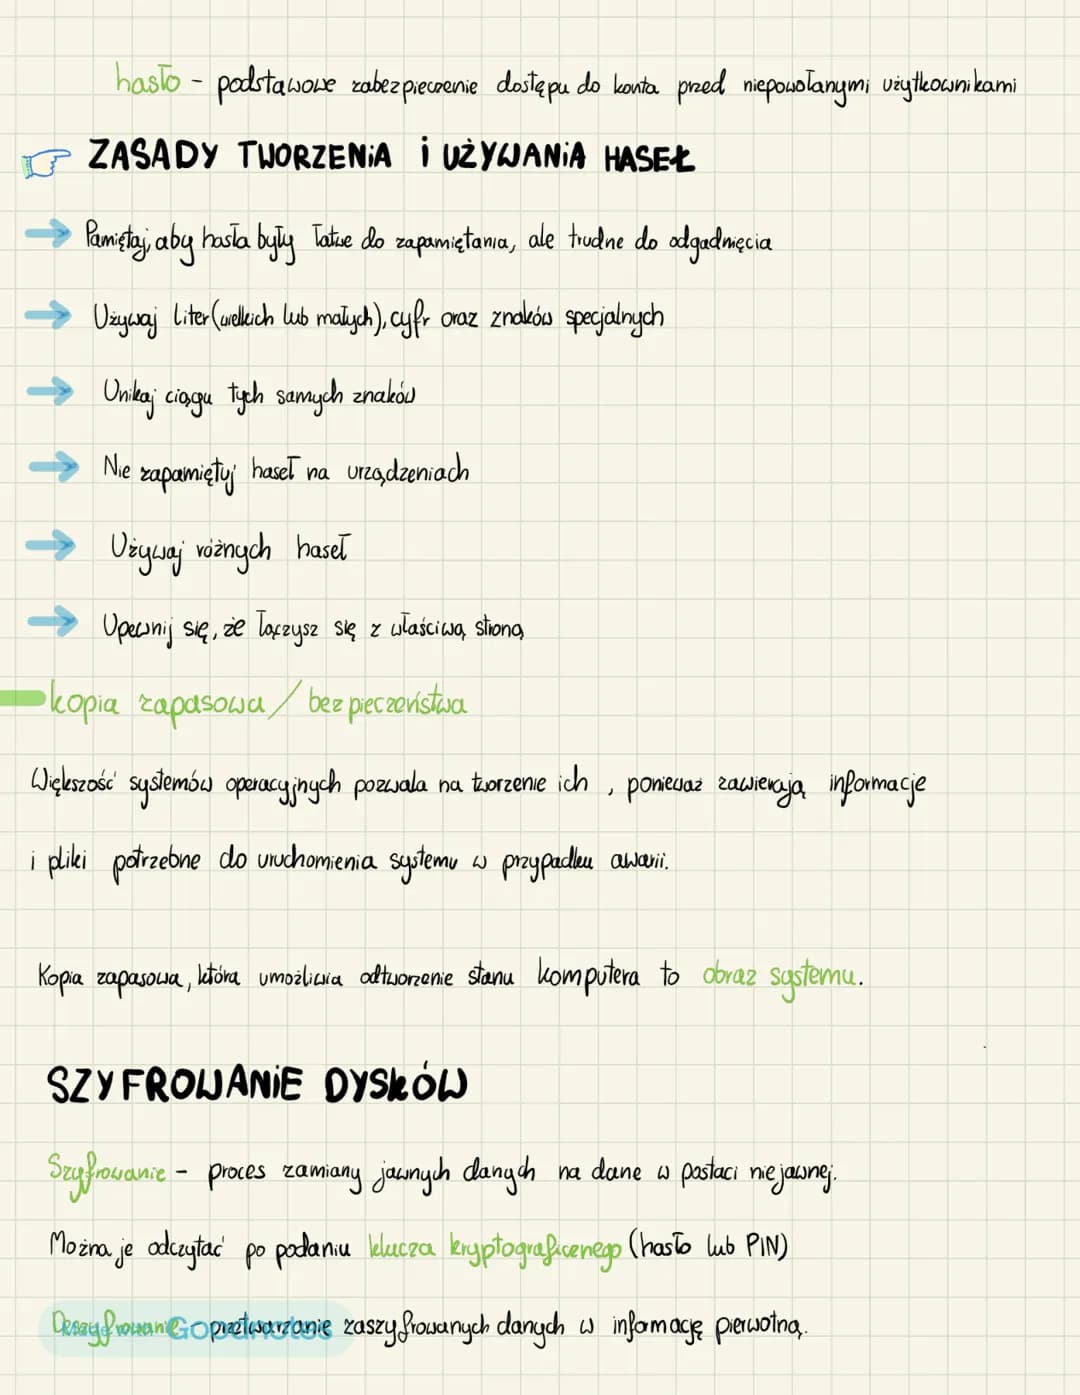 hasło - podstawowe zabezpieczenie dostępu do konta przed niepowołanymi użytkownikami
ZASADY TWORZENiA i UŻYWANiA HASEŁ
Pamiętaj, aby hasła były łatwe do zapamiętania, ale trudne do odgadnięcia
Używaj liter (wielkich lub małych), cyfr oraz znaków specjalnych
Unikaj ciągu tych samych znaków
Nie zapamiętuj haseł na urządzeniach
Używaj różnych haseł
Upewnij się, że łączysz się z właściwą stroną
kopia zapasowa / bezpieczeństwa
Większość systemów operacyjnych pozwala na tworzenie ich, ponieważ zawierają informacje
i pliki potrzebne do uruchomienia systemu w przypadku awarii.
Kopia zapasowa, która umożliwia odtworzenie stanu komputera to obraz systemu.
SZYFROWANiE DYSKÓW
Szyfrowanie - proces zamiany jawnych danych na dane w postaci niejawnej.
Można je odczytać po podaniu klucza kryptograficznego (hasło lub PIN)
Deszyfrowanie - przetwarzanie zaszyfrowanych danych w informację pierwotną.
Made with Goodnotes